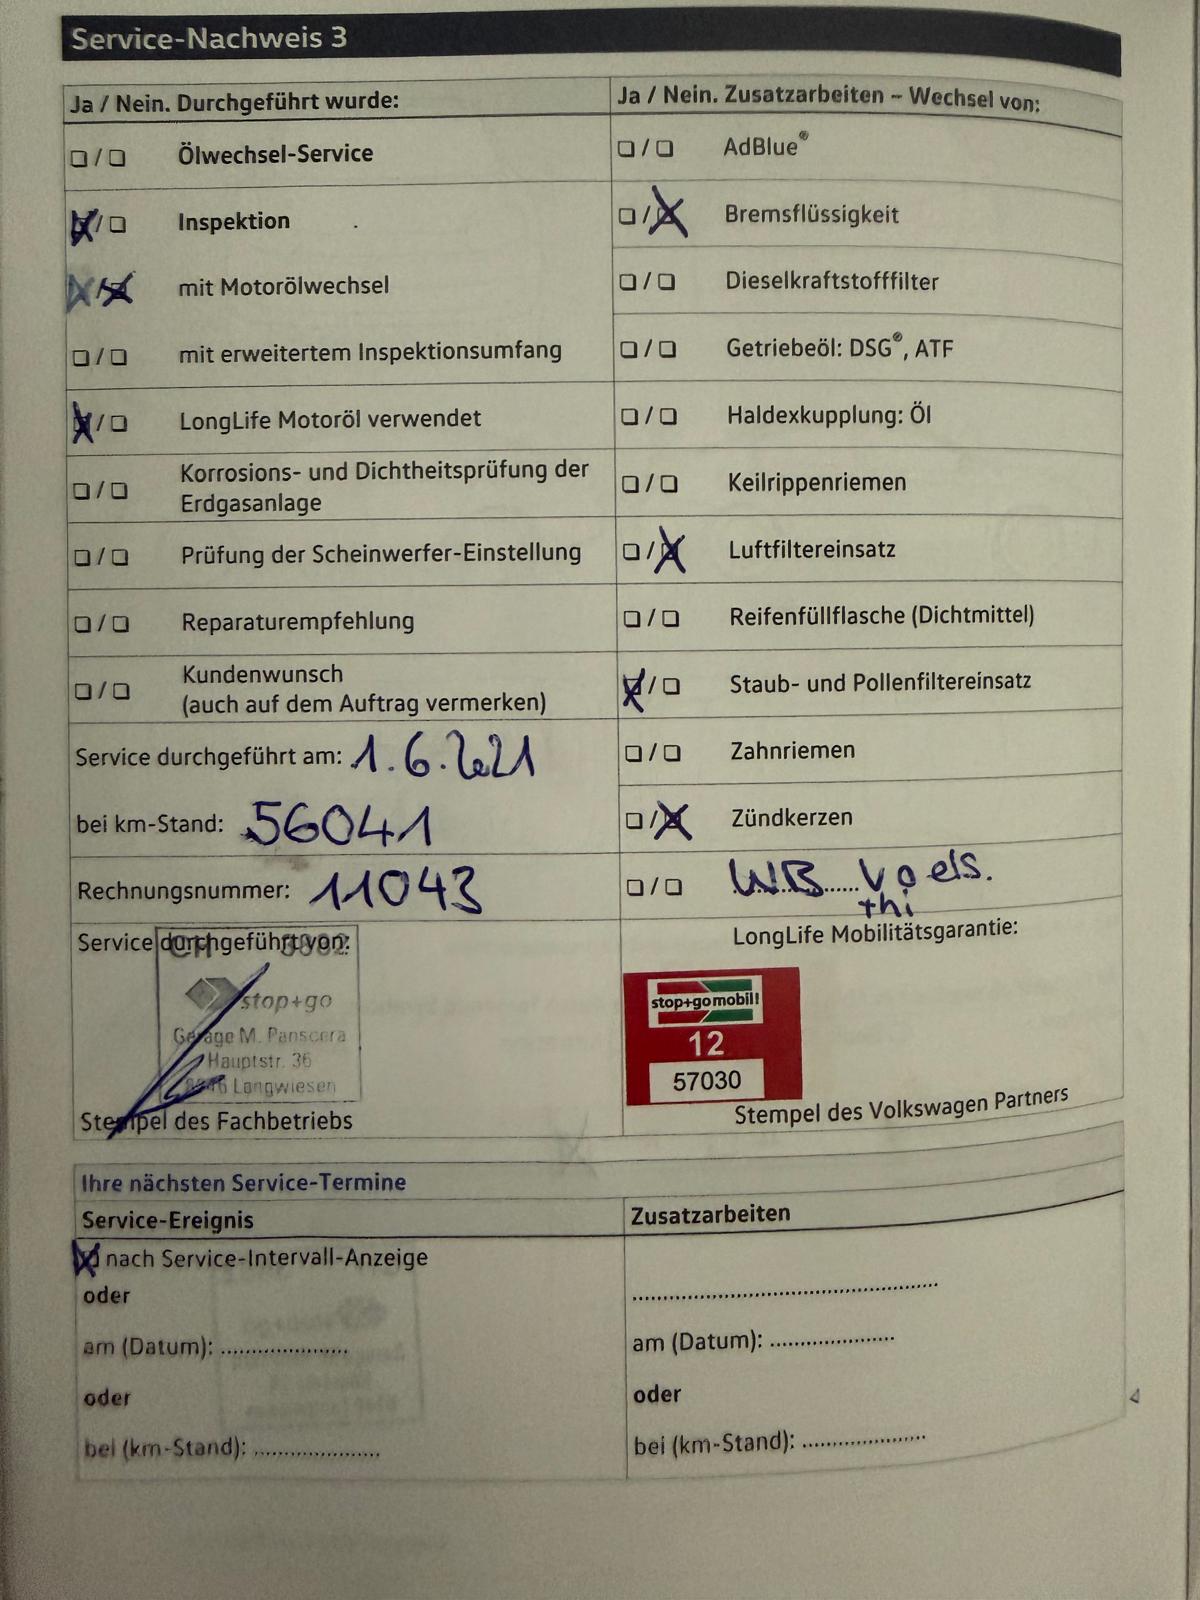 Service-Nachweis 3
Ja / Nein. Durchgeführt wurde:
Ölwechsel-Service
Inspektion
mit Motorölwechsel
mit erweitertem Inspektionsumfang
LongLife Motoröl verwendet
Korrosions- und Dichtheitsprüfung der
Erdgasanlage
Prüfung der Scheinwerfer-Einstellung
Reparaturempfehlung
Kundenwunsch
(auch auf dem Auftrag vermerken)
Service durchgeführt am: 1.6.2021
bei km-Stand: 56041
Rechnungsnummer: 11043
Service durchgeführt von:
CH
stop+go
Garage M. Panscera
Hauptstr. 36
Langwiesen
Stempel des Fachbetriebs
Ja / Nein. Zusatzarbeiten – Wechsel von:
AdBlue®
Bremsflüssigkeit
Dieselkraftstofffilter
Getriebeöl: DSG®, ATF
Haldexkupplung: Öl
Keilrippenriemen
Luftfiltereinsatz
Reifenfüllflasche (Dichtmittel)
Staub- und Pollenfiltereinsatz
Zahnriemen
Zündkerzen
WB
LongLife Mobilitätsgarantie:
stop+go mobil!
12
57030
Stempel des Volkswagen Partners
Ihre nächsten Service-Termine
Service-Ereignis
nach Service-Intervall-Anzeige
oder
am (Datum): ......................
oder
bei (km-Stand): ......................
Zusatzarbeiten
am (Datum): ......................
oder
bei (km-Stand): ......................